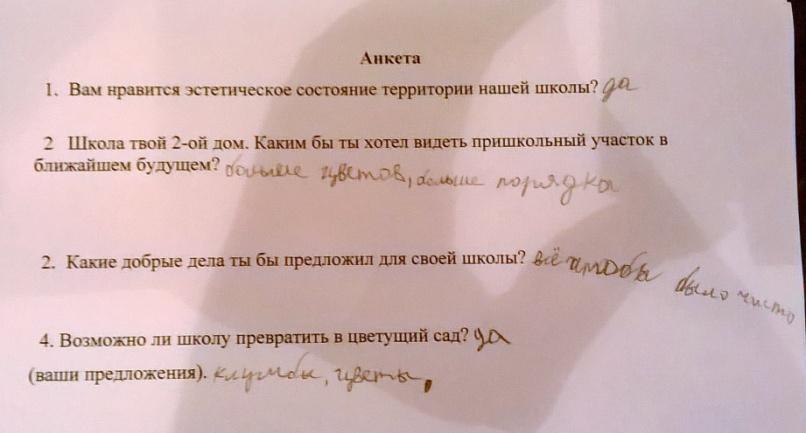 Анкета
1. Вам нравится эстетическое состояние территории нашей школы? да
2 Школа твой 2-ой дом. Каким бы ты хотел видеть пришкольный участок в
ближайшем будущем? больше цветов, больше порядка
2. Какие добрые дела ты бы предложил для своей школы? всё чтобы было чисто
4. Возможно ли школу превратить в цветущий сад? да
(ваши предложения). клумбы, цветы,